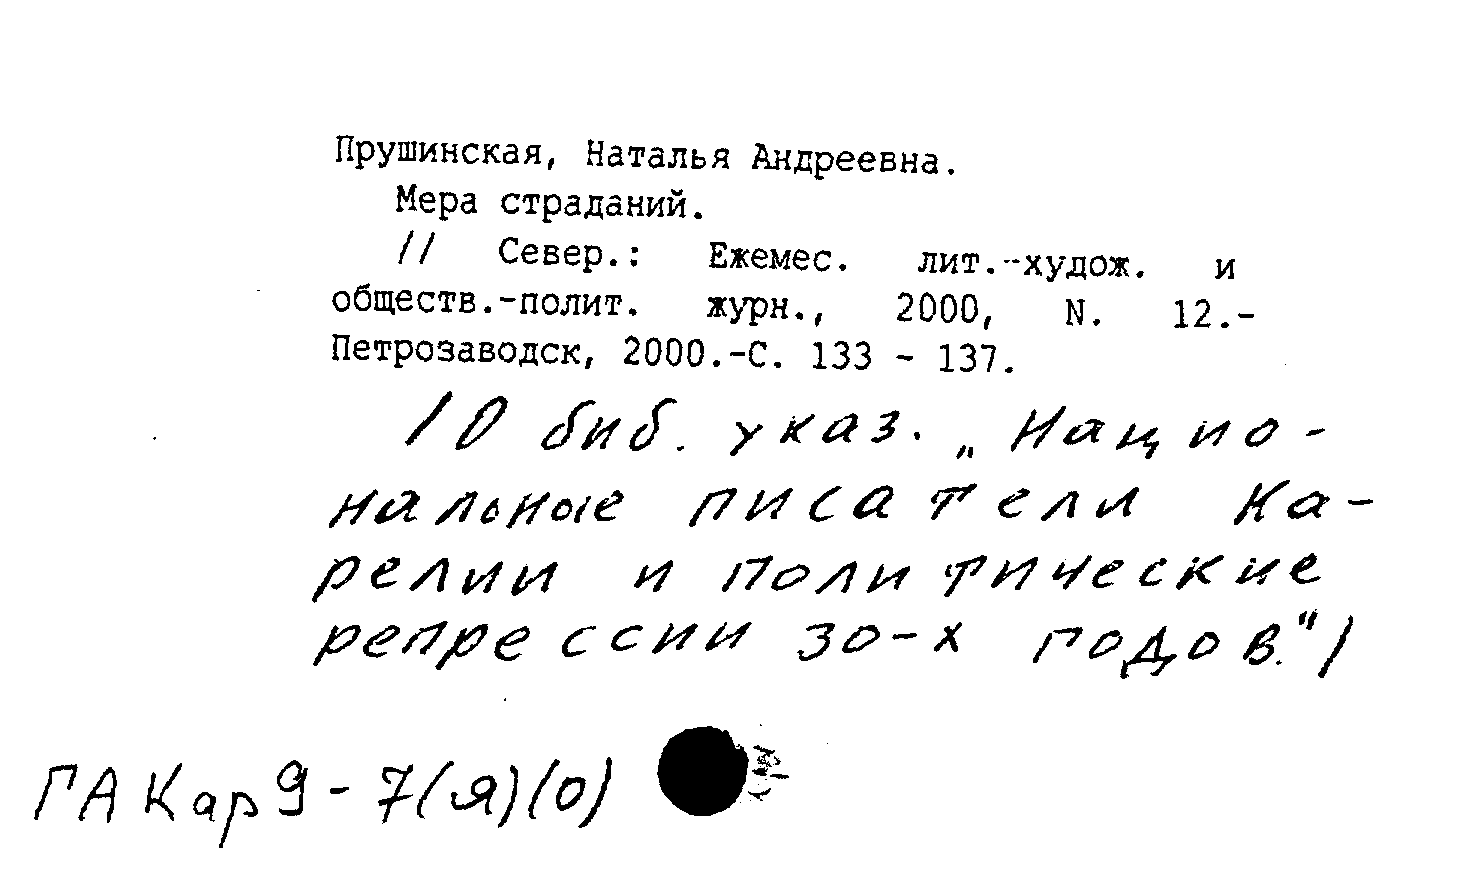 Прушинская, Наталья Андреевна.
Мера страданий.
// Север.: Ежемес. лит.-худож. и
обществ.-полит. журн., 2000, N. 12.-
Петрозаводск, 2000.-С. 133 - 137.
/О биб. указ. „Нацио-
нальные писатели Ка-
релии и политические
репрессии 30-х годов."/
ГАКар9-7(я)(0)